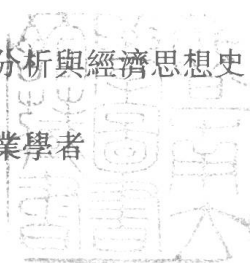 分析與經濟思想史
業學者